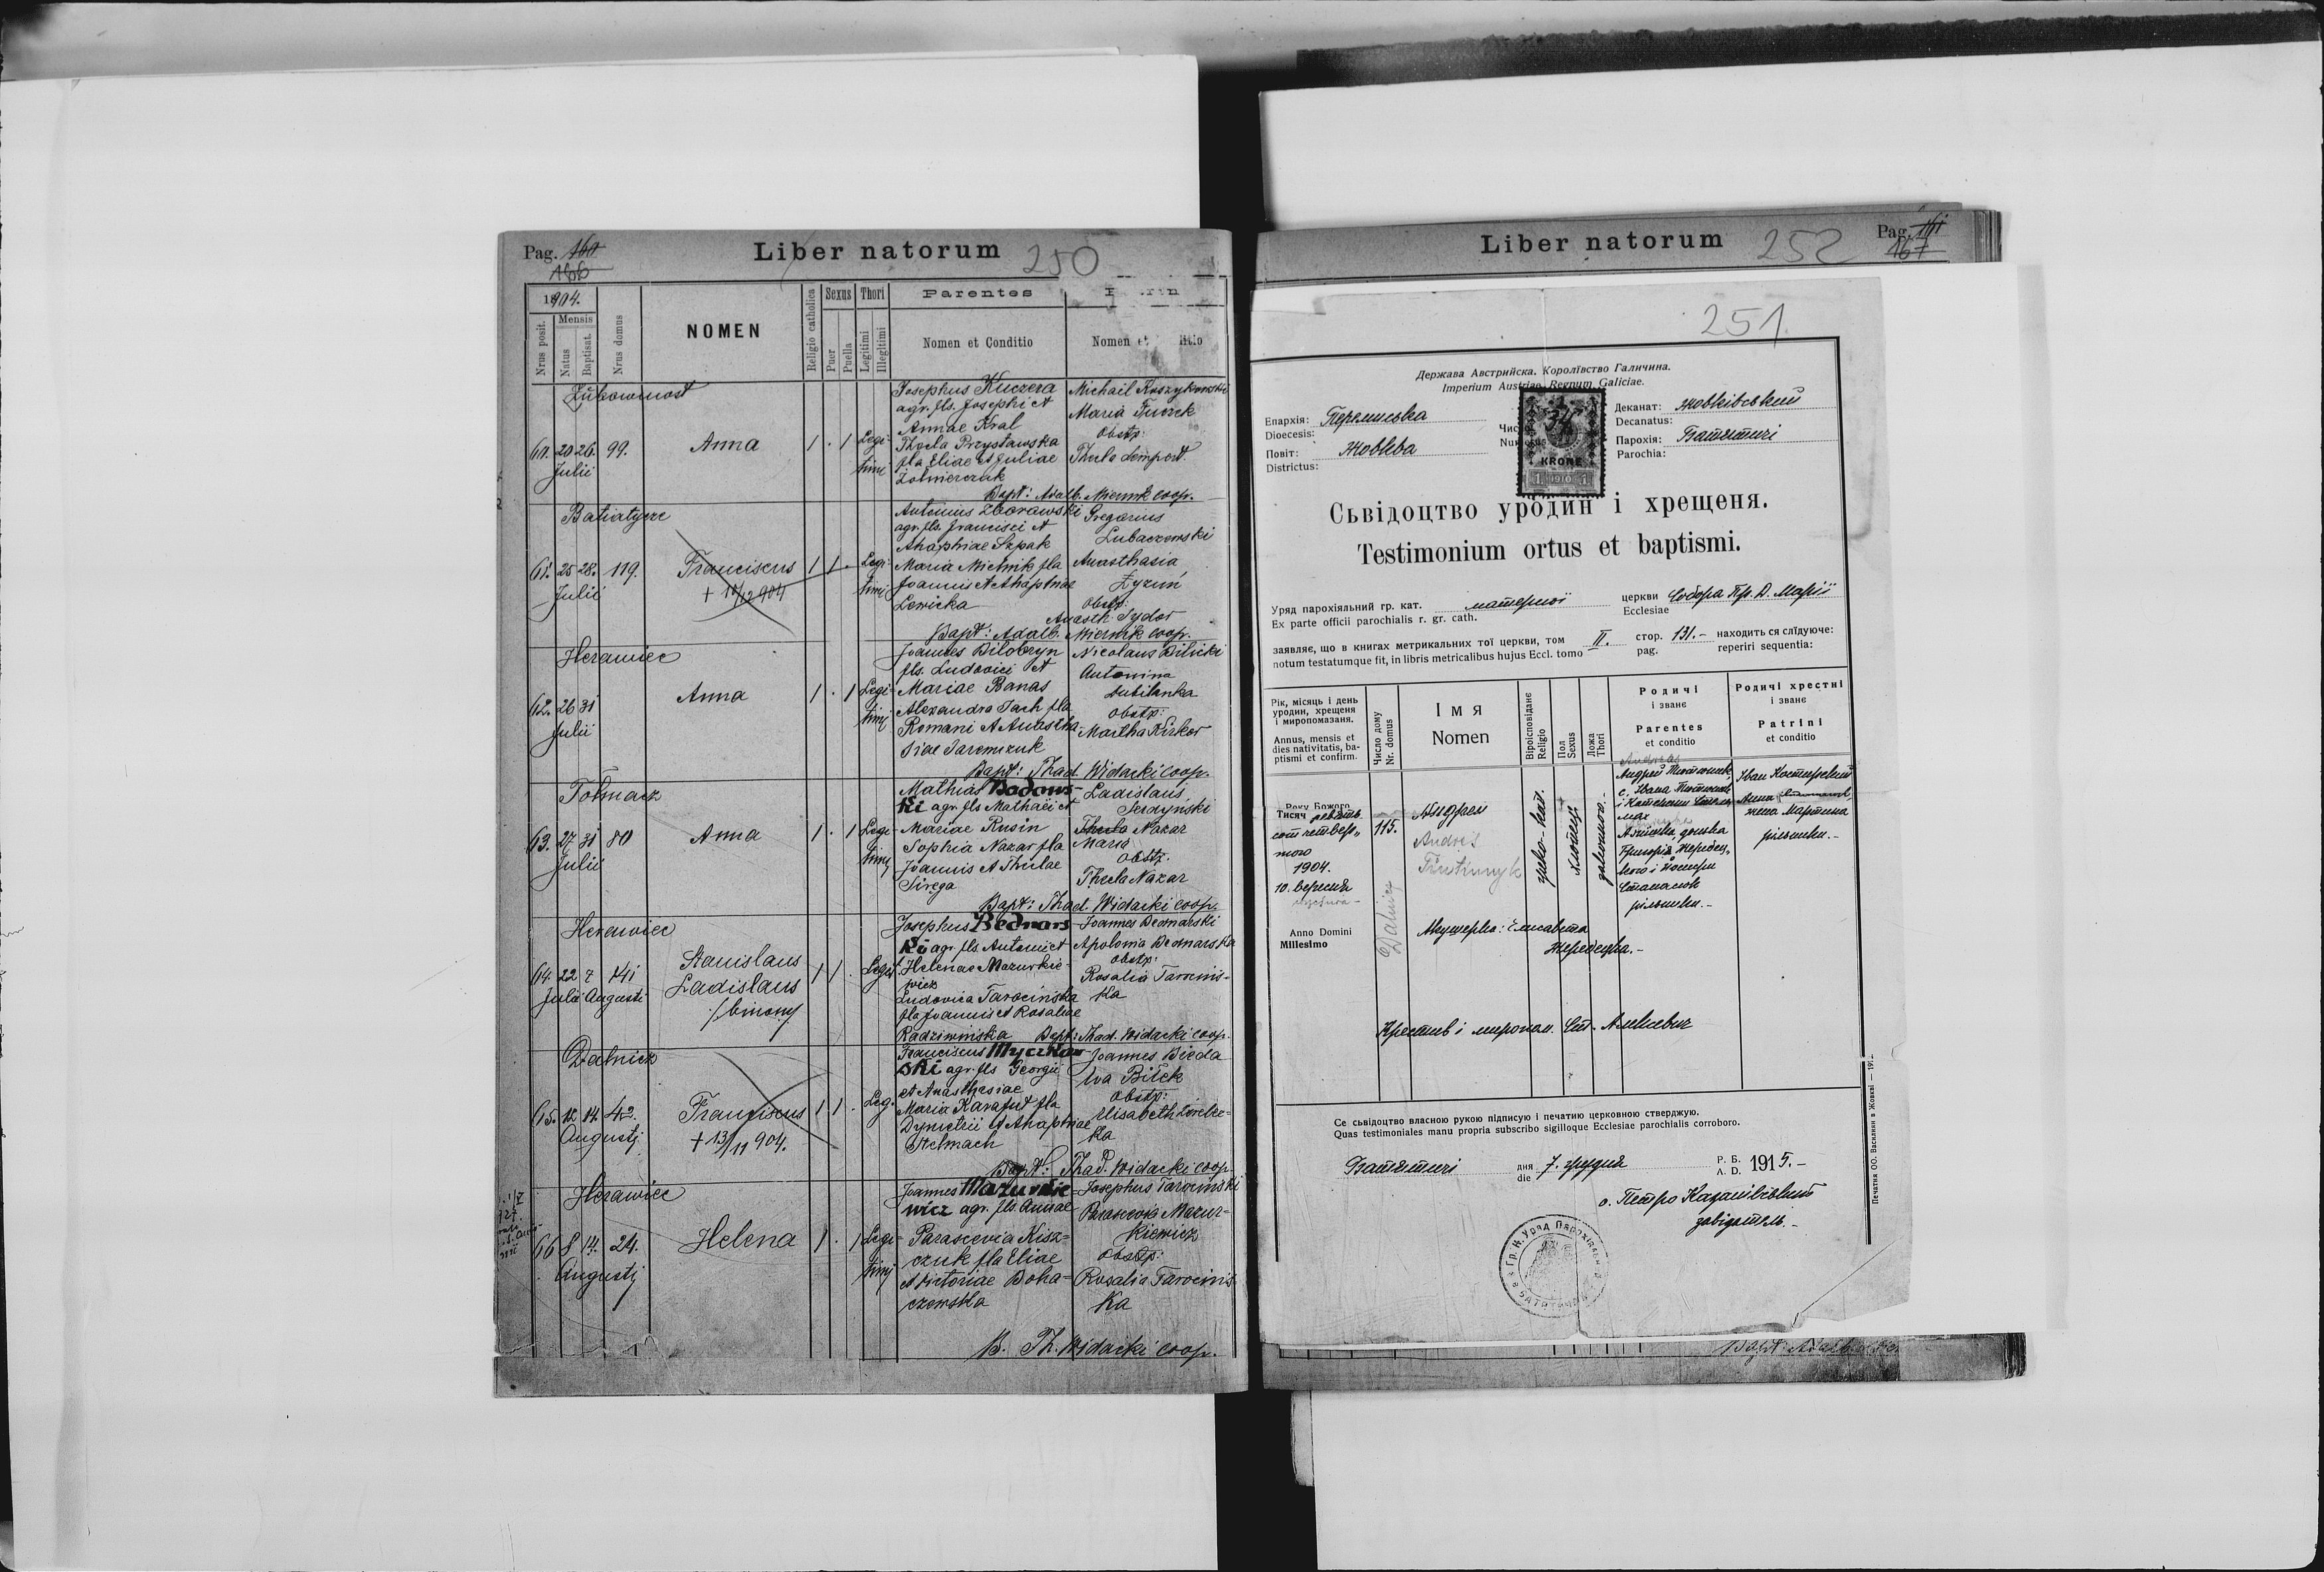 Pag. 160
166
Liber natorum
250
1904.
Nrus posit.
Mensis
Natus
Baptisat.
Nrus domus
NOMEN
Religio catholica
Sexus
Puer
Puella
Thori
Legitimi
Illegitimi
Parentes
Nomen et Conditio
Nomen et
Josephus Kuczera
agr. fls. Josephi et
Annae Kral
Thecla Przystawska
fla Eliae et Juliae
Żołnierczuk
Michail Koszykowski
Maria Furek
Obstp:
60. 20 26. 99.
Julii
Anna
1 . 1
Legi-
timi
Bapt: Adalb. Miernik coop.
Batiatycze
61. 25 28. 119.
Julii
Franciscus
+ 10/12 904
1 1 .
Legi-
timi
Antonius Zborowski
agr. fls. Francisci et
Ahaphiae Szpak
Maria Mielnik fla
Joannis et Ahaphiae
Lewicka
Gregorius
Lubaczewski
Anasthasia
Obstp:
Anasth. Sydor
Bapt: Adalb. Miernik coop.
Herawiec
62. 26 31
Julii
Anna
1 . 1
Legi-
timi
Joannes Bilobryn
fls. Ludovici et
Mariae Banas
Alexandra Jach fla
Romani et Anastha-
siae Jaremczuk
Nicolaus Bilicki
Antonina
Obstp:
Martha Kirker
Bapt: Thad. Widacki coop.
Tołmacz
63. 27 31 80
Julii
Anna
1 . 1
Legi-
timi
Mathias Badows-
ki agr. fls Mathaei et
Mariae Rusin
Sophia Nazar fla
Joannis et Theclae
Sirega
Ladislaus
Serdyński
Thecla Nazar
Maria
Obstp.
Thecla Nazar
Bapt: Thad. Widacki coop.
Herawiec
64. 22 7 141
Julii Augusti
Stanislaus
Ladislaus
/binomy
1 1 .
Legit
Josephus Bednars-
ki agr. fls Antoni et
Helenae Mazurkie-
wicz
Ludovica Tarocińska
fla Joannis et Rosaliae
Radziwińska
Joannes Bednarski
Apolonia Bednarska
Obstp:
Rosalia Tarocińs-
ka
Bapt: Thad. Widacki coop.
Dalnicz
65. 12 14. 42.
Augusti
Franciscus
+ 13/11 904.
1 1 .
Leg.
Franciscus Myczkow-
ski agr. fls Georgii
et Anasthasiae
Maria Karafut fla
Dymetrii et Ahaphiae
Stelmach
Joannes Bieda
Eva Biłek
Obstp:
Elisabeth
ka
Bapt: Thad. Widacki coop.
Herawiec
66 8 14. 24.
Augusti
Helena
1 . 1
Legi-
timi
Joannes Mazurkie-
wicz agr. fls. Annae
Parascevia Kisz-
czuk fla Eliae
et Victoriae Boha-
czewska
Josephus Tarocinski
Parascevia Mazur-
kiewicz
Obstp:
Rosalia Tarocins-
ka
B. Th. Widacki coop.
Liber natorum
252
Pag. 161
167
251.
Держава Австрийска. Королівство Галичина.
Imperium Austriae Regnum Galiciae.
Епархія: Перемиська
Dioecesis:
Повіт: Жовква
Districtus:
KRONE
1 1910 1
Деканат: Жовківський
Decanatus:
Парохія: Батятичі
Parochia:
Сьвідоцтво уродин і хрещеня.
Testimonium ortus et baptismi.
Уряд парохіяльний гр. кат. матерної церкви Собора Пр. Д. Марії
Ex parte officii parochialis r. gr. cath. Ecclesiae
заявляє, що в книгах метрикальних тої церкви, том II. стор. 131.- находить ся слїдуюче:
notum testatumque fit, in libris metricalibus hujus Eccl. tomo pag. reperiri sequentia:
Рік, місяць і день
уродин, хрещеня
і миропомазаня.
Annus, mensis et
dies nativitatis, ba-
ptismi et confirm.
Число дому
Nr. domus
Імя
Nomen
Віроісповіданє
Religio
Пол
Sexus
Ложа
Thori
Родичі
і званє
Parentes
et conditio
Родичі хрестні
і званє
Patrini
et conditio
Року Божого
Тисяч девять
сот четвер-
того
1904.
10. вересня
Anno Domini
Millesimo
115.
Dalnicz
Андрей
Andreas
греко-кат.
хлопець
законного.-
Іван Костирский
Анна
жена Мартина
рільники.-
Григорія Жередец-
кого і Йосифи
рільники.-
Акушерка: Єлисавета
Жередецка.-
Крестив і миропом.
Се сьвідоцтво власною рукою підписую і печатию церковною стверджую.
Quas testimoniales manu propria subscribo sigilloque Ecclesiae parochialis corroboro.
Батятичі
дня 7. грудня Р. Б. 1915.-
die A. D.
о. Петро
завідатель.-
Печатня ОО. Василиян в Жовкві — 191